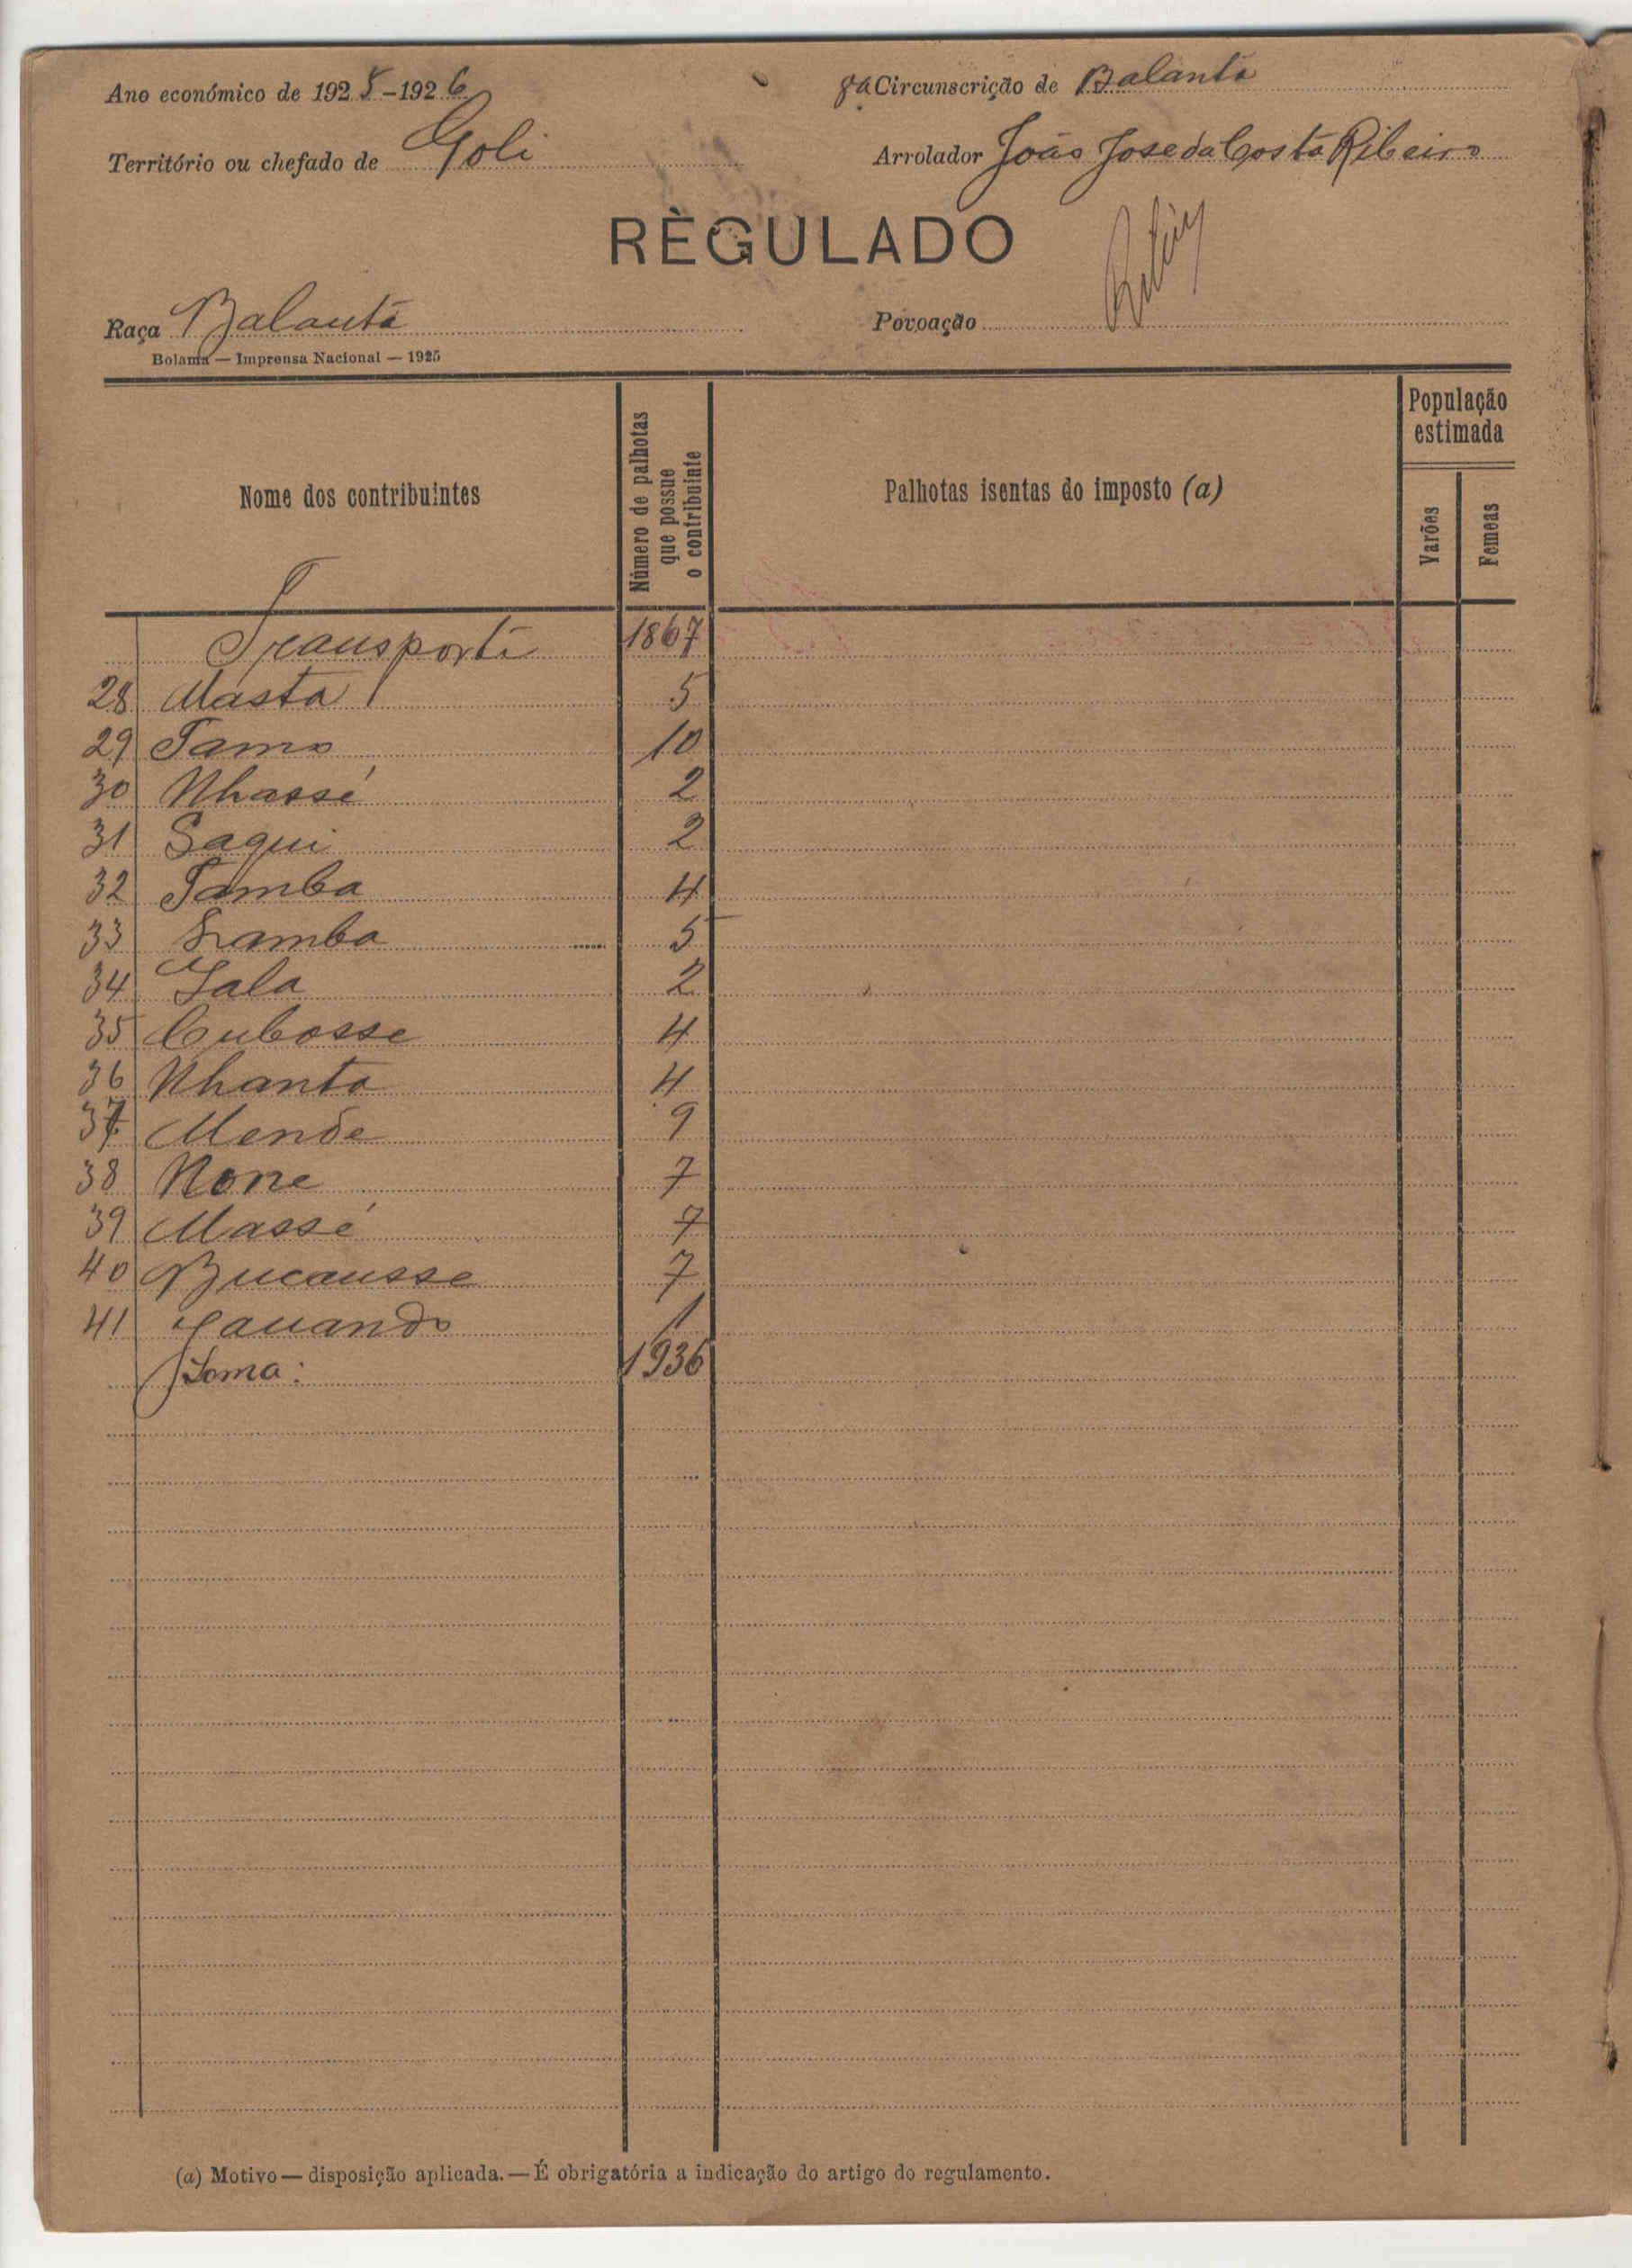 Ano económico de 1925-1926
8a Circunscrição de Balanta
Território ou chefado de Goli
Arrolador João Jose da Costa Ribeiro
RÈGULADO
Ribeiro
Raça Balanta
Povoação
Bolama — Imprensa Nacional — 1925
Nome dos contribuintes
Número de palhotas que possue o contribuinte
Palhotas isentas do imposto (a)
População estimada
Varões
Femeas
Transporte 1867
28 Masta 5
29 Tamo 10
30 Nhassé 2
31 Saqui 2
32 Tamba 4
33 Samba 5
34 Iala 2
35 Cubosse 4
36 Nhanta 4
37 Mende 9
38 None 7
39 Massé 7
40 Bucausse 7
41 Iauando 1
Soma: 1936
(a) Motivo — disposição aplicada. — É obrigatória a indicação do artigo do regulamento.